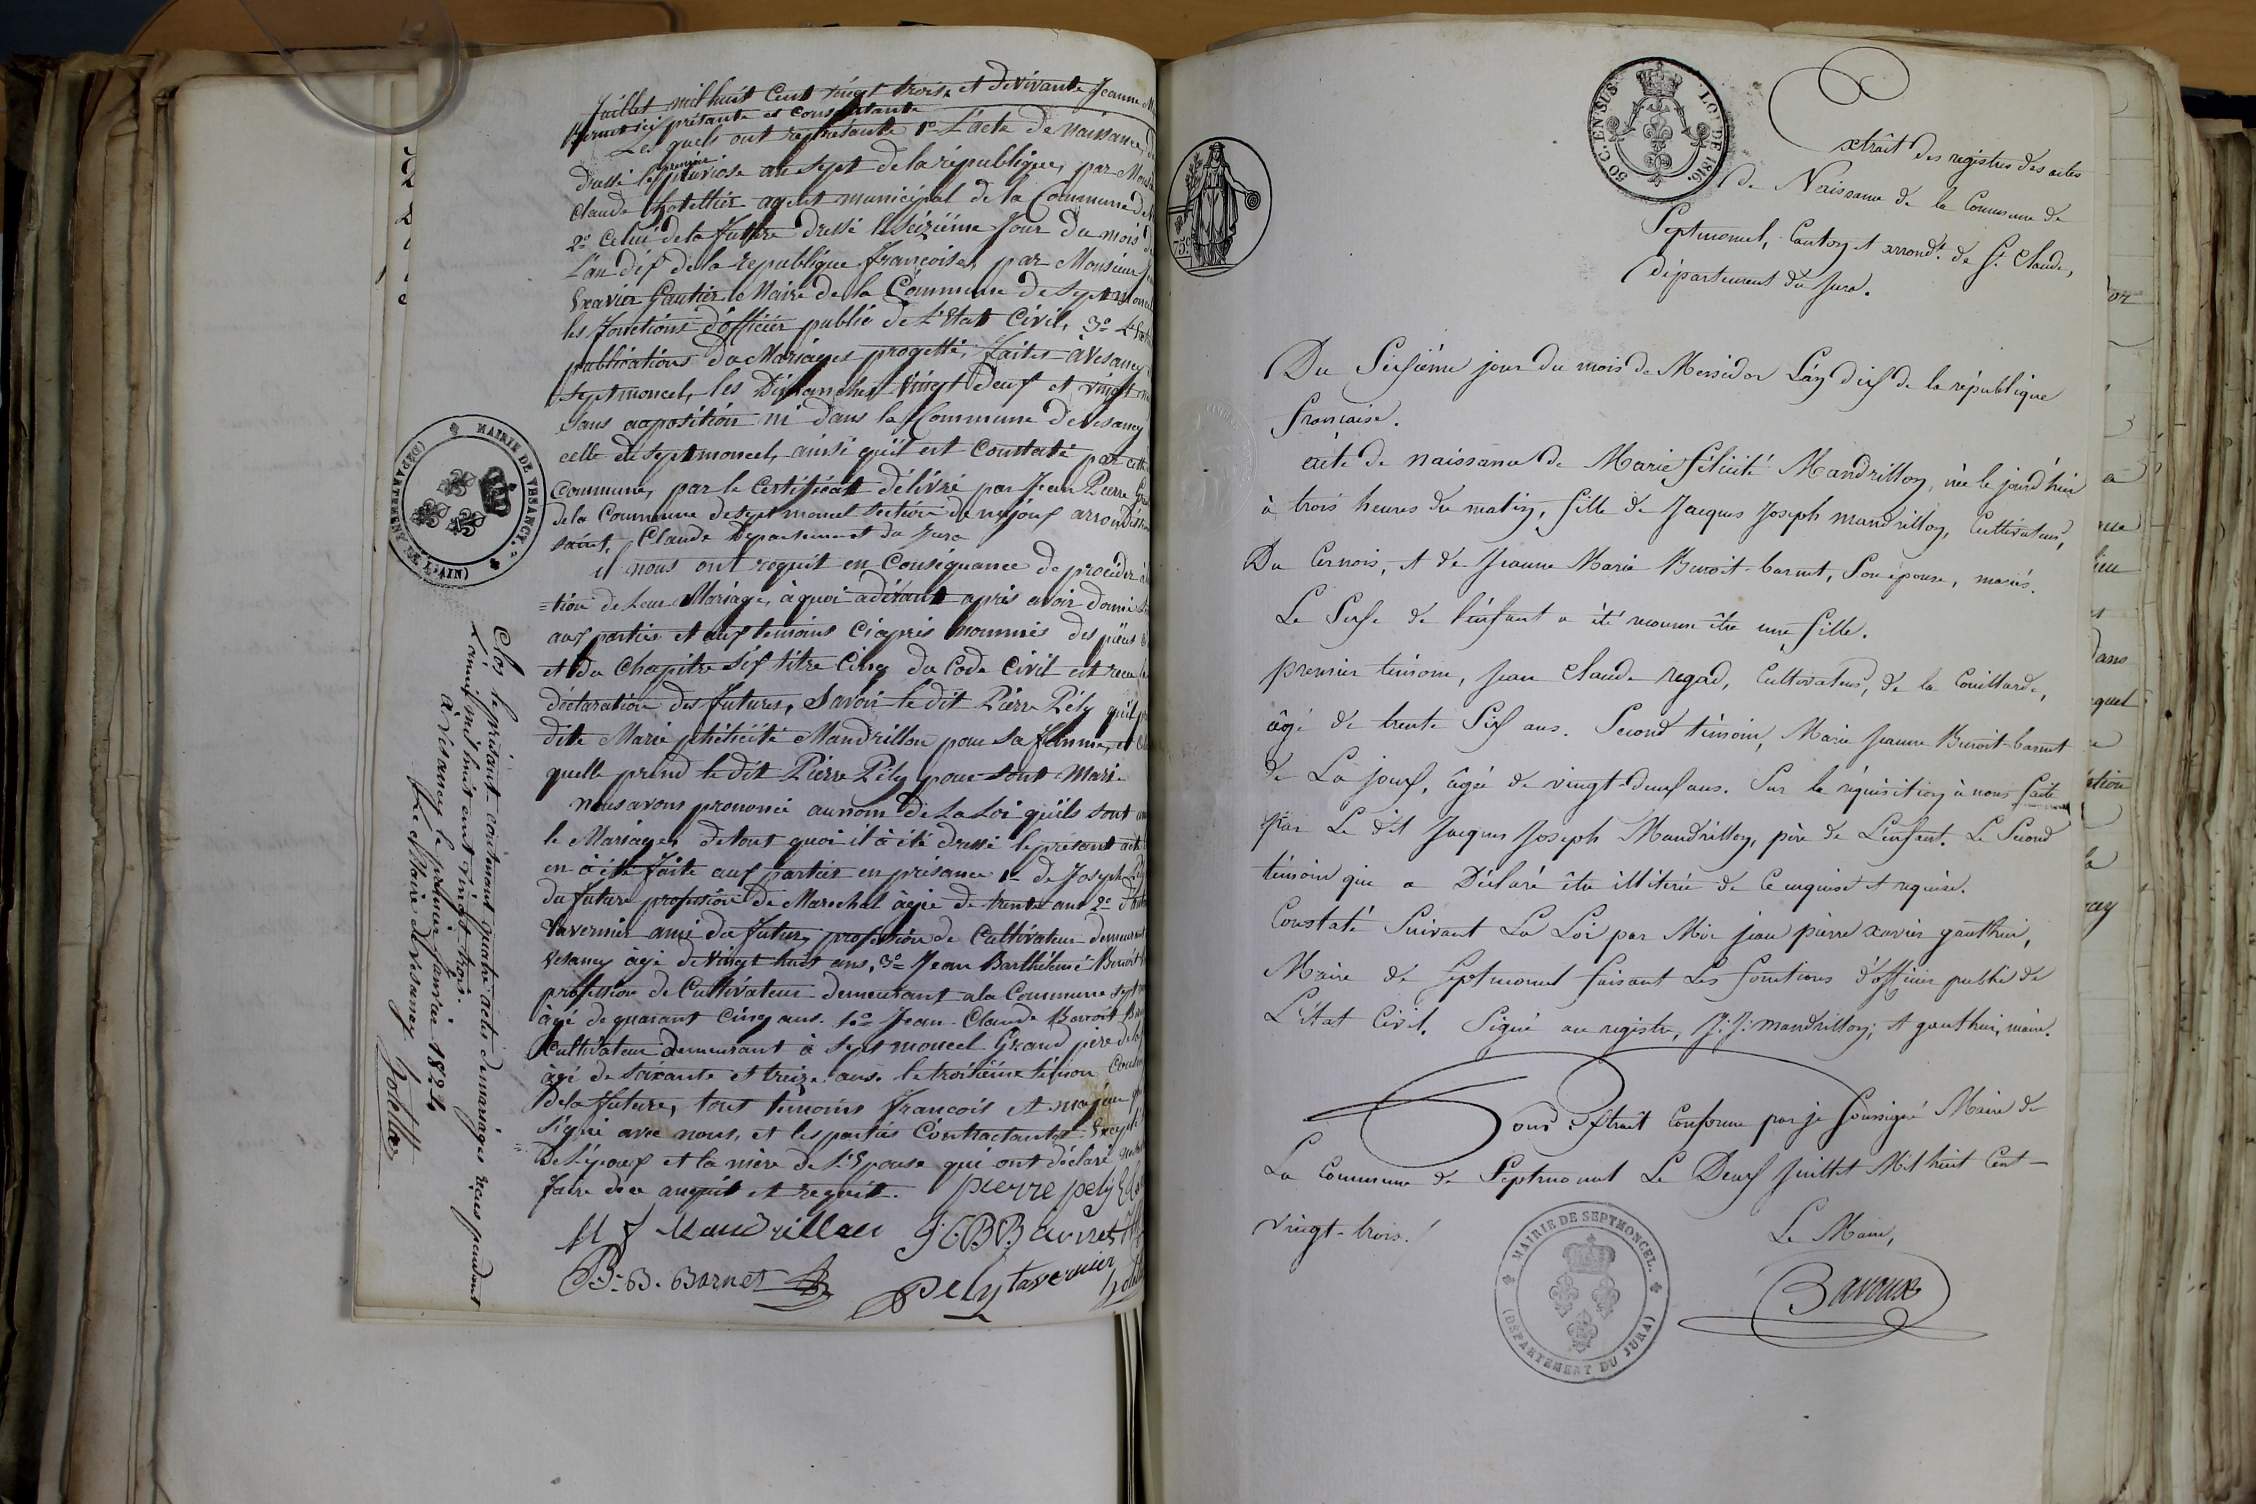 Juillet mil huit Cent vingt trois et de vivante Jeanne M
présante et consentante
Les quels ont représanté 1º L'acte de Naissance, d
première
dressé le pluviose an sept de la république, par Mons
Claude hotellier agent municépal de la Commune de
2º Celui de la Future dressé le seizième Jour du mois d
L'an dix de la République françoise, par Monsieur J
Exavier Gautier le Maire de la Commune de Septmoncel
les fonctions d'officier public de L'Etat Civil, 3º
publications de Mariages progetté, faites à Vesancy
Septmoncel, les Dimanches vingt Deux et vingt
sans aoposition ni Dans la Commune de Vesancy
celle de Septmoncel, ainsi qu'il est Constaté par cette
Commune, par le Certificat délivré par Jean Pierre
de la Commune de Septmoncel Section de arrondisse
saint, Claude Département du Jura
et nous ont requit en Conséquance de procéder à
=tion de Leur Mariage, à quoi adérant après avoir donné
aux parties et aux temoins Ciaprès nommés des pièces
et du Chapitre Six titre Cinq du Code Civil et recu
déclaration des futures, Savoir le dit Pierre Pély qu'il
dite Marie phélicité Mandrillon pour Sa femme, et
quelle prend le dit Pierre Pély pour sont Mari
nous avons prononcé au nom de La Loi qu'ils sont
le Mariage, de tout quoi il à été dressé le présant acte
en à été faite aux parties en présance 1º de Joseph Pély
du future profession de Marechal agée de trente ans 2º
Tavernier ami du futur, profession de Cultivateur demeurant
Vesancy agé de vingt huit ans, 3º Jean Barthélemé Benoit
profession de Cultivateur demeurant a la Commune Sept
agé de quarant Cinq ans. 4º Jean Claude Benoit
Cultivateur demeurant à Sept moncel Grand père de la
agé de Soixante et treize ans. le troisième témoin Cousin
de la future, tous témoins francois et majeur
Signé avec nous, et les parties Contractantes
De L'époux et la mère de L'Epouse qui ont déclaré
faire de ce anquit et requit. pierre pely
M f Mandrillon J. C. B Barnet
B. B. Barnet Pely tavernier
MAIRIE DE VESANCY.
(DÉPARTEMENT DE L'AIN)
Clos le présant contenant quatre actes de mariages reçus pendant
L'année mil huit cent vingt trois.
à Vesancy le premier janvier 1824
Le Maire de Vesancy
hotellier
75 c
50 C. EN SUS.
LOI DE 1816.
Extrait des registres des actes
de Naissance de la Commune de
Septmoncel, Canton et arrondt. de St. Claude,
département du Jura.
Du Sixième jour du mois de Messidor L'an dix de la république
française.
acte de naissance de Marie félicité Mandrillon, née le jourd'hui
à trois heures du matin, fille de Jacques Joseph Mandrillon, Cultivateur,
Du Cernois, et de Jeanne Marie Benoit-barnet, Son épouse, mariés.
Le Sexe de l'enfant a été reconnu être une fille.
premier témoin, Jean Claude regad, Cultivateur, de la Couillarde,
âgé de trente Six ans. Second témoin, Marie Jeanne Benoit-barnet
de La joux, âgée de vingt-deux ans. Sur la réquisition à nous faite
par Le dit Jacques Joseph Mandrillon, père de L'enfant. Le Second
témoin qui a Déclaré être illitérée de Ce enquise et requise.
Constaté Suivant La Loi par Moi jean pierre xavier gauthier,
Maire de Septmoncel faisant Les fonctions d'officier public de
L'état Civil. Signé au registre, J: J: mandrillon; et gauthier, maire.
Pour Extrait Conforme par je Soussigné Maire de
La Commune de Septmoncel Le Deux Juillet Mil huit Cent
vingt-trois.
Le Maire,
Bavoux
MAIRIE DE SEPTMONCEL.
(DÉPARTEMENT DU JURA)